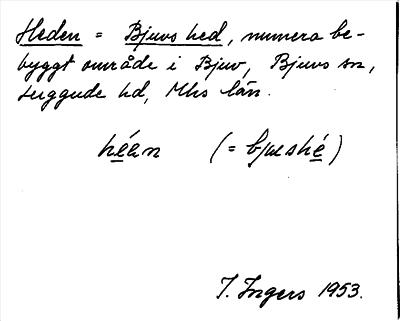 Heden = Bjuvs hed, numera be-
byggt område i Bjuv, Bjuvs sn,
Luggude hd, Mhs län.
héən (= bjɯshé)
I. Ingers 1953.